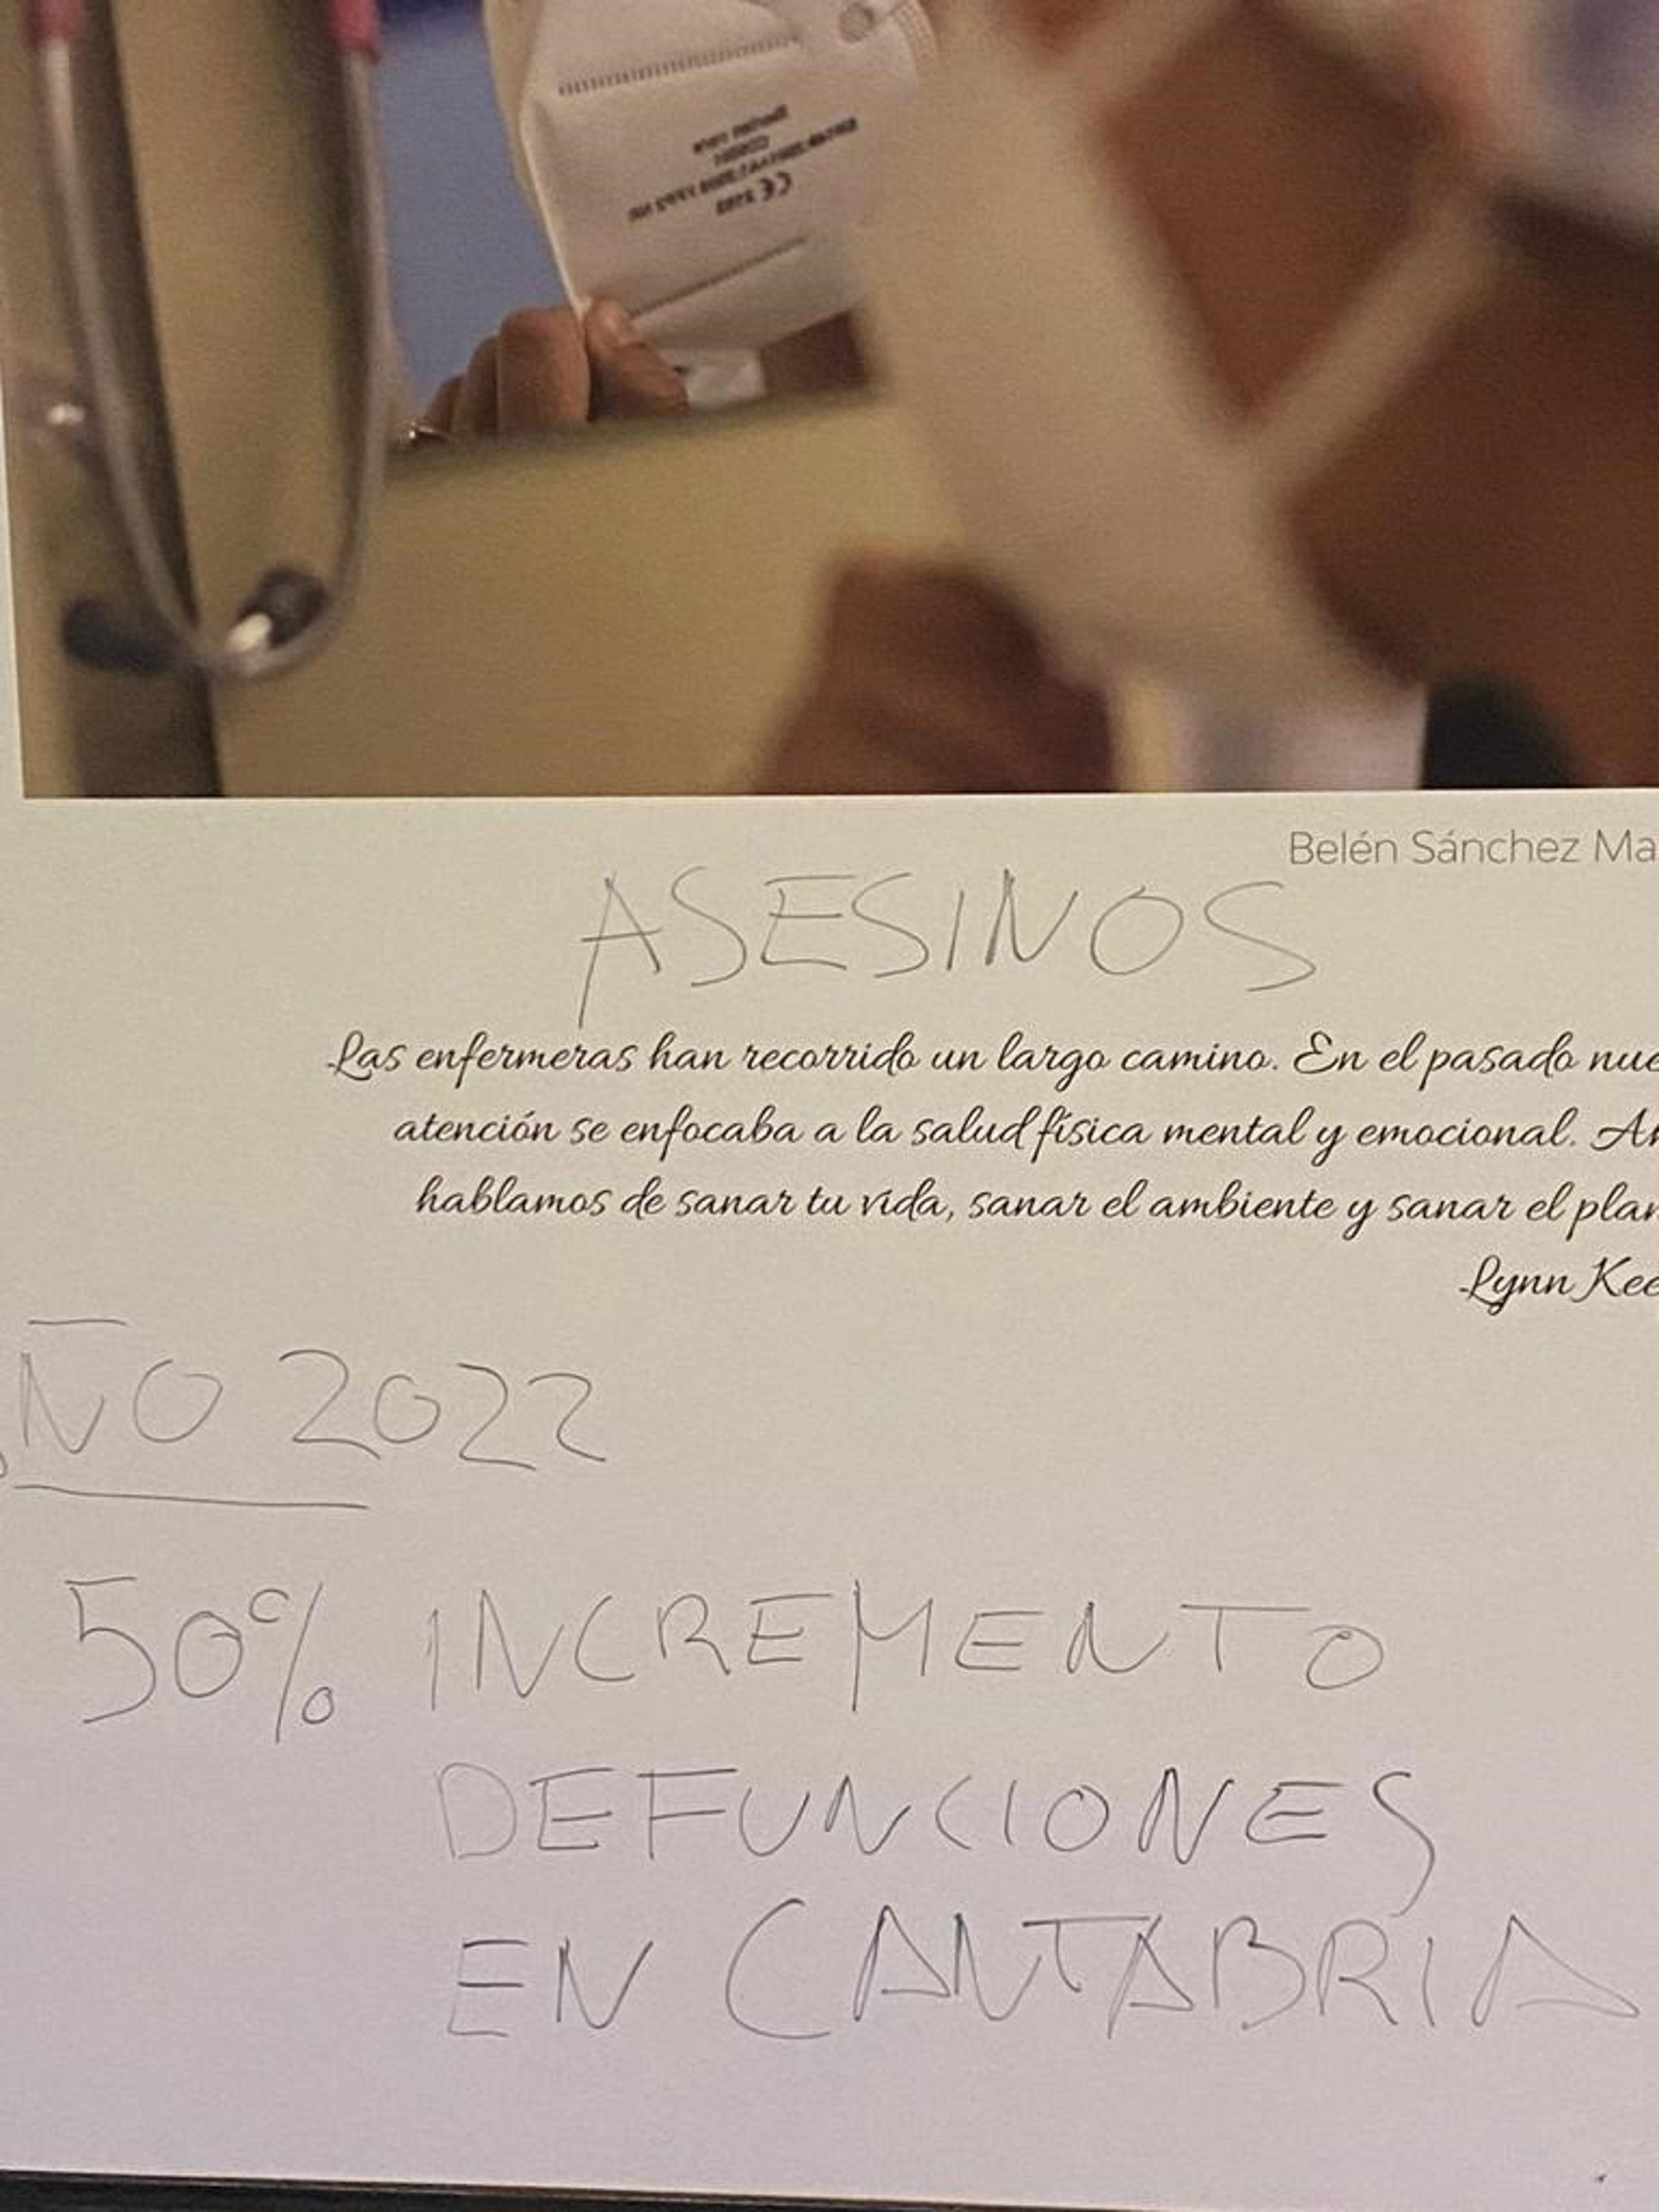 Belén Sánchez Ma
ASESINOS
Las enfermeras han recorrido un largo camino. En el pasado nue
atención se enfocaba a la salud física mental y emocional. 
hablamos de sanar tu vida, sanar el ambiente y sanar el plan
Lynn Kee
ÑO 2022
50% INCREMENTO
DEFUNCIONES
EN CANTABRIA